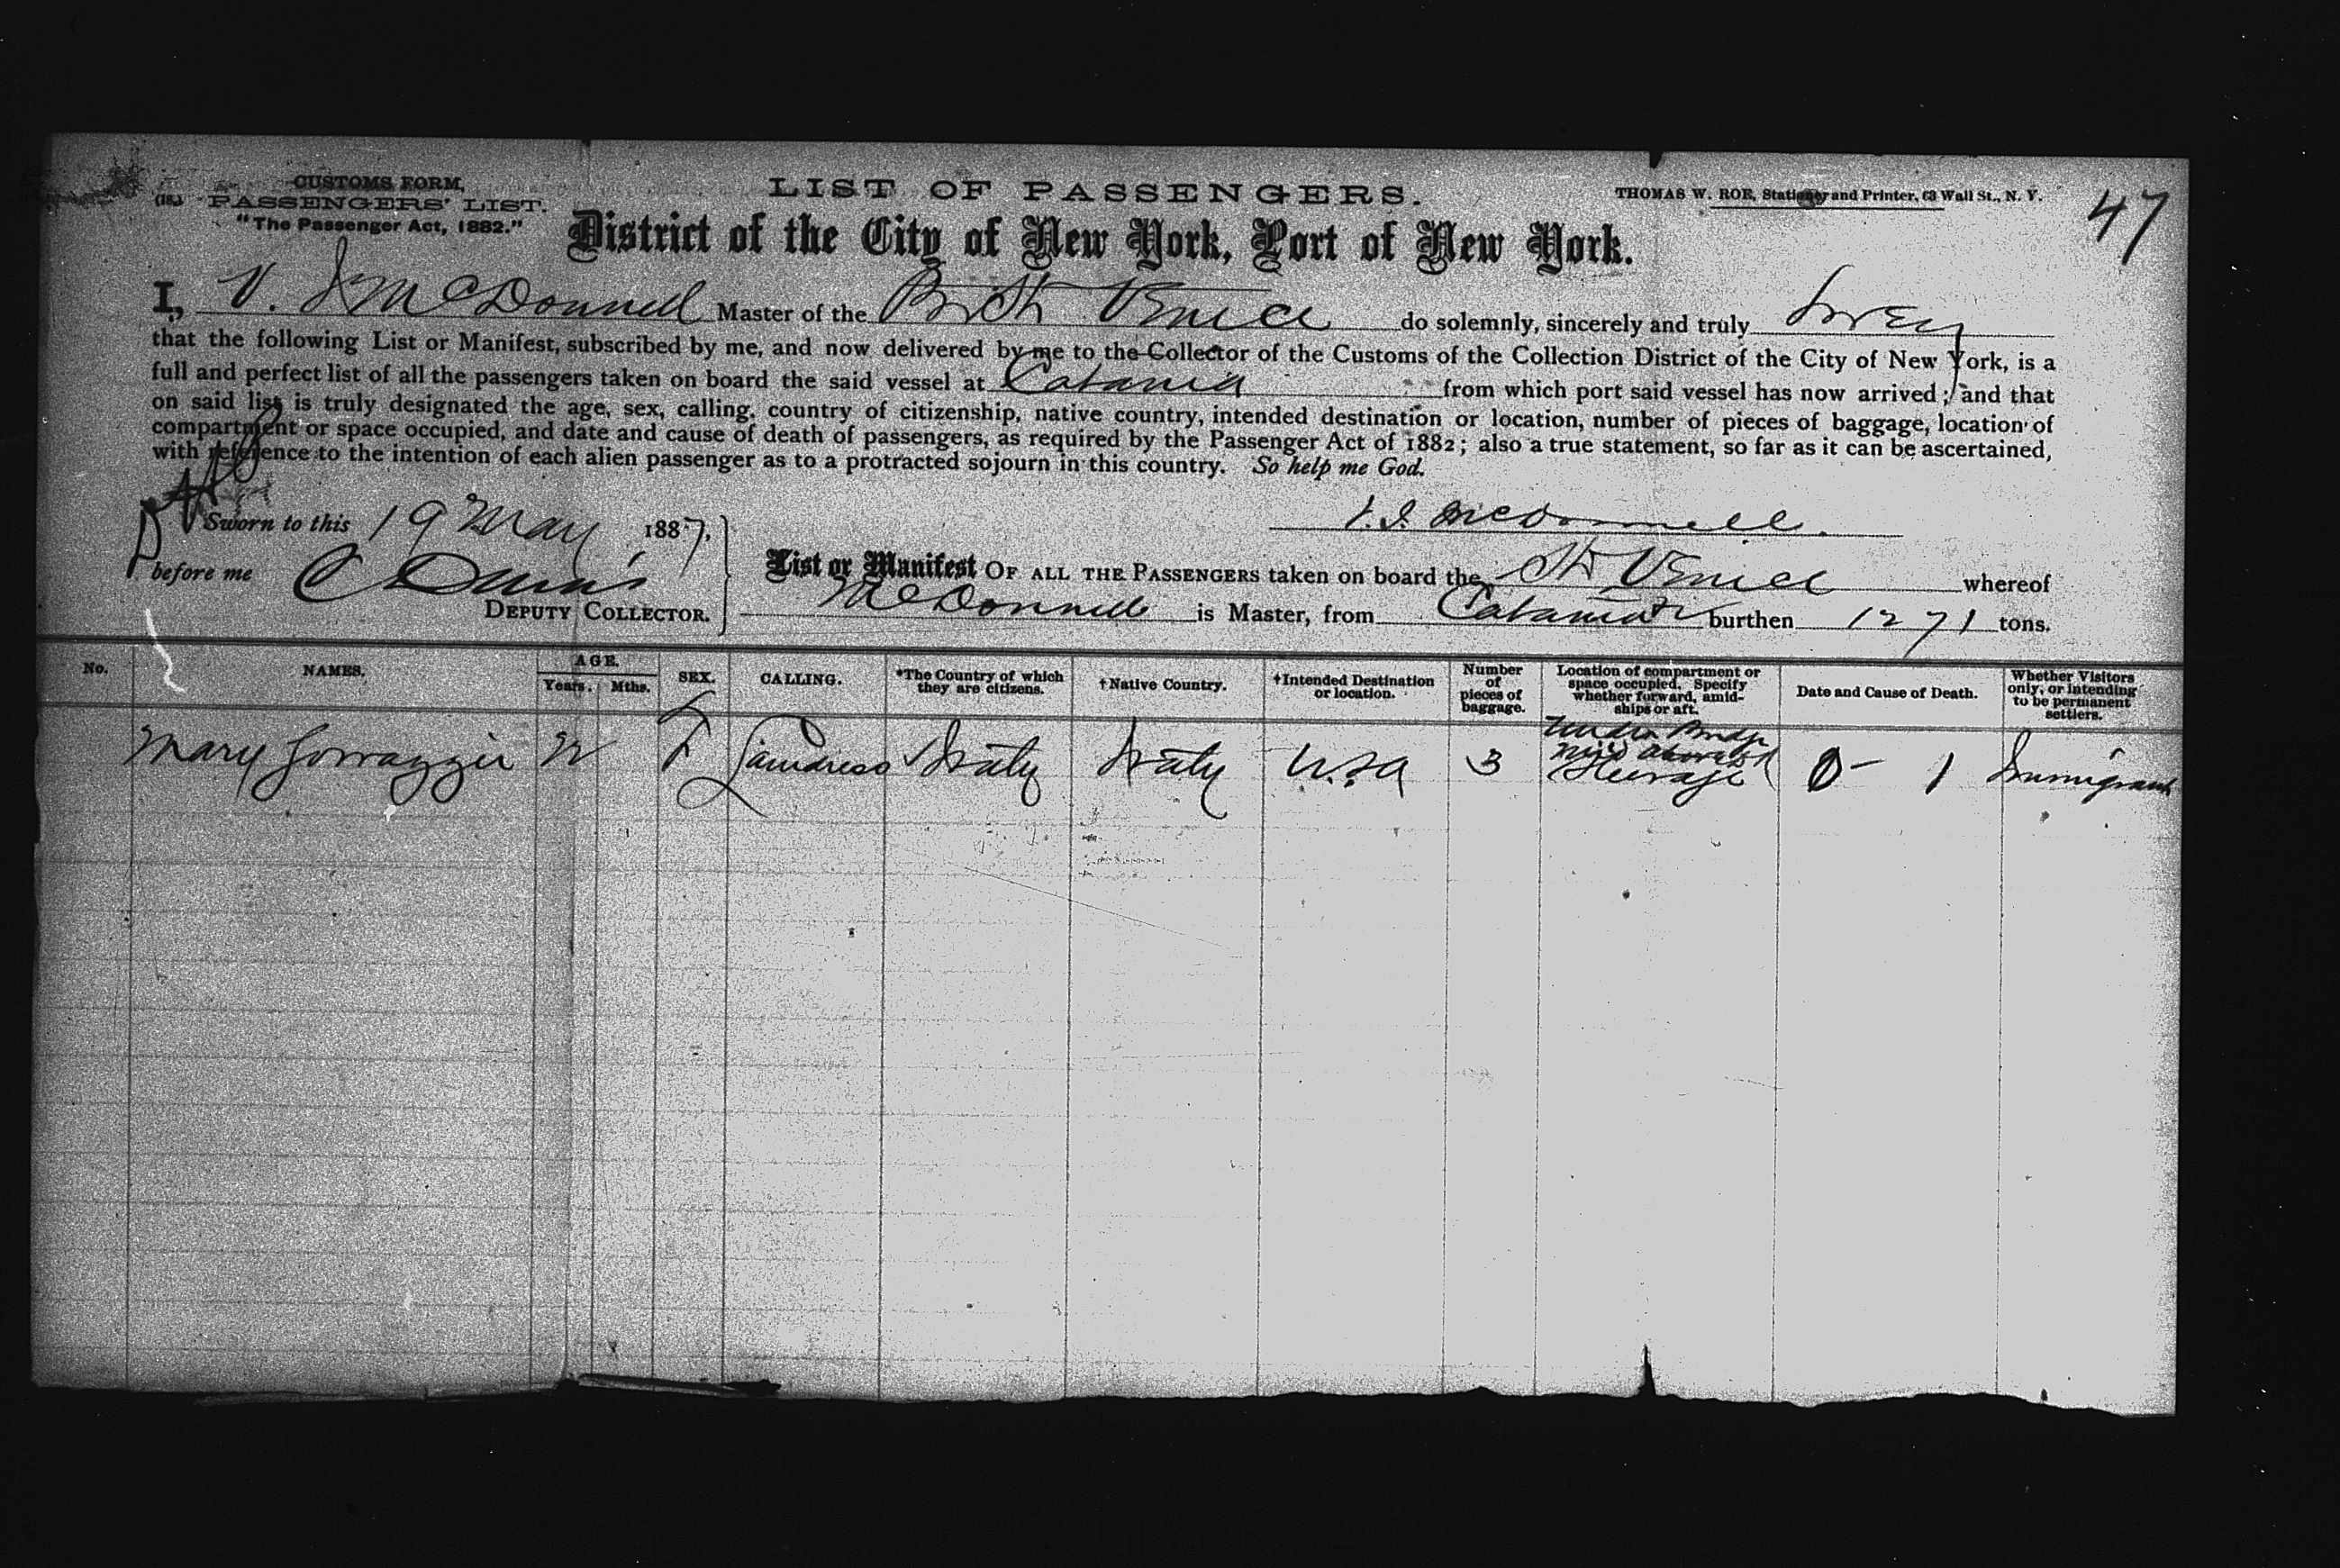 CUSTOMS FORM,
PASSENGERS' LIST.
"The Passenger Act, 1882."
LIST OF PASSENGERS.
THOMAS W. ROE, Stationer and Printer, 63 Wall St., N. Y.
47
District of the City of New York, Port of New York.
I, V. J McDonnell Master of the Brit Str Venice do solemnly, sincerely and truly swear
that the following List or Manifest, subscribed by me, and now delivered by me to the Collector of the Customs of the Collection District of the City of New York, is a
full and perfect list of all the passengers taken on board the said vessel at Catania from which port said vessel has now arrived; and that
on said list is truly designated the age, sex, calling, country of citizenship, native country, intended destination or location, number of pieces of baggage, location of
compartment or space occupied, and date and cause of death of passengers, as required by the Passenger Act of 1882; also a true statement, so far as it can be ascertained,
with reference to the intention of each alien passenger as to a protracted sojourn in this country. So help me God.
Sworn to this 19 May 1887,
V. J. McDonnell
before me
DEPUTY COLLECTOR.
List or Manifest OF ALL THE PASSENGERS taken on board the Str Venice whereof
McDonnell is Master, from Catania burthen 1271 tons.
No. NAMES. AGE. Years. Mths. SEX. CALLING. *The Country of which they are citizens. †Native Country. †Intended Destination or location. Number of pieces of baggage. Location of compartment or space occupied. Specify whether forward, amidships or aft. Date and Cause of Death. Whether Visitors only, or intending to be permanent settlers.
Mary F Laundress Italy Italy U.S.A 3 Under Bridge Steerage 0 - 1 Immigrant